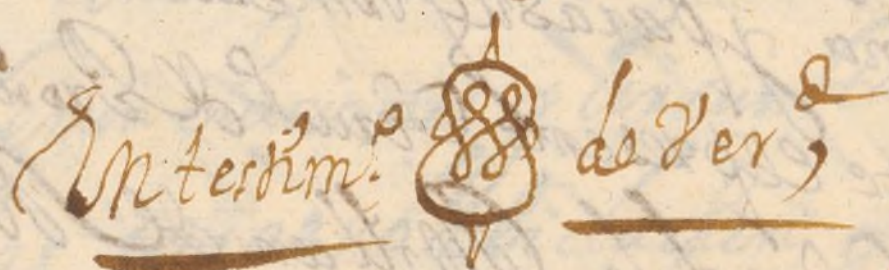 En testim.º de Verd